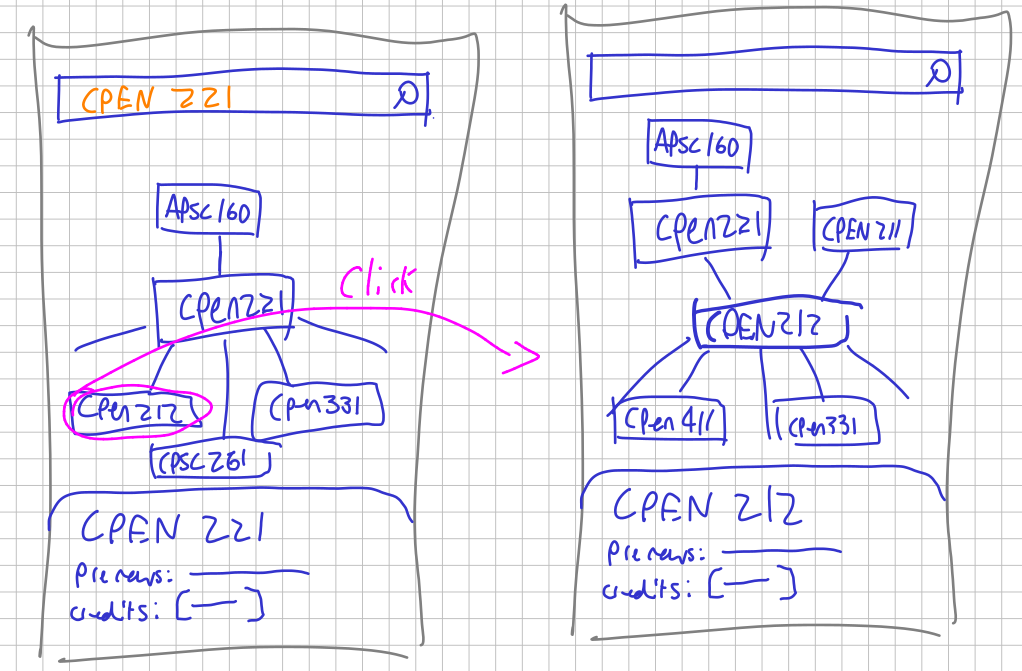 CPEN 221
APSC 160
CPEN 221
Click
CPEN 212
CPEN 331
CPSC 261
CPEN 221
Prereqs:
credits: [ ]
APSC 160
CPEN 221
CPEN 211
CPEN 212
CPEN 411
CPEN 331
CPEN 212
Prereqs:
credits: [ ]